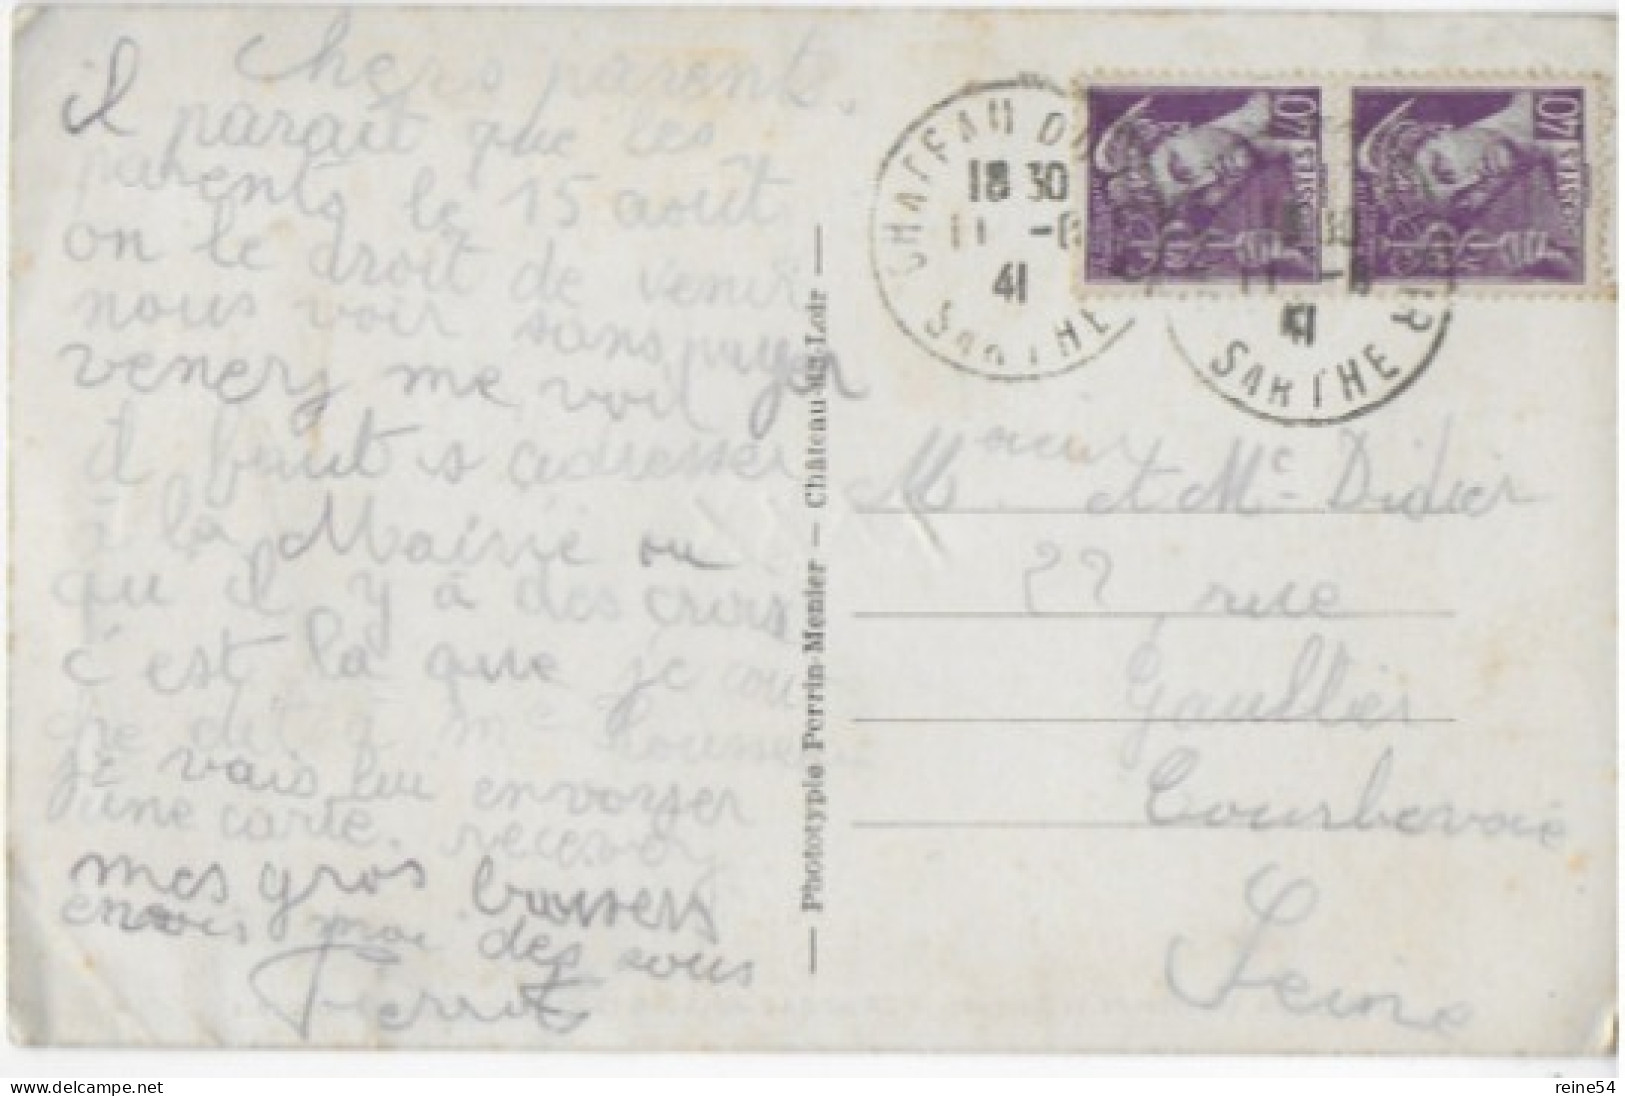 Chers parents.
il parait que les
parents le 15 août
on le droit de venir
nous voir sans payer
venery me voir
il faut s adresser
à la Mairie ou
qu il y a des croix
c'est la que je cou
che dit a me
je vais lui envoyer
une carte. recevez
mes gros baisers
envois moi des sous
Pierrot
— Phototypie Perrin-Menier — Château-du-Loir —
CHATEAU DU
18 30
11 -8
41
SARTHE
40
POSTES
40
POSTES
41
SARTHE
Monsieur et Me Didier
22 rue
Gaultier
Courbevoie
Seine
reine54